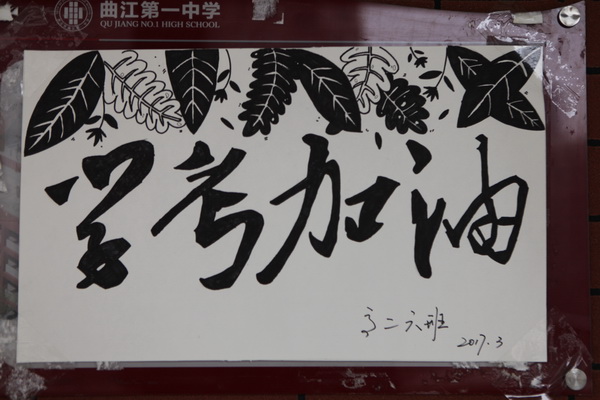 曲江第一中学
QU JIANG NO.1 HIGH SCHOOL
学考加油
高二六班
2017.3